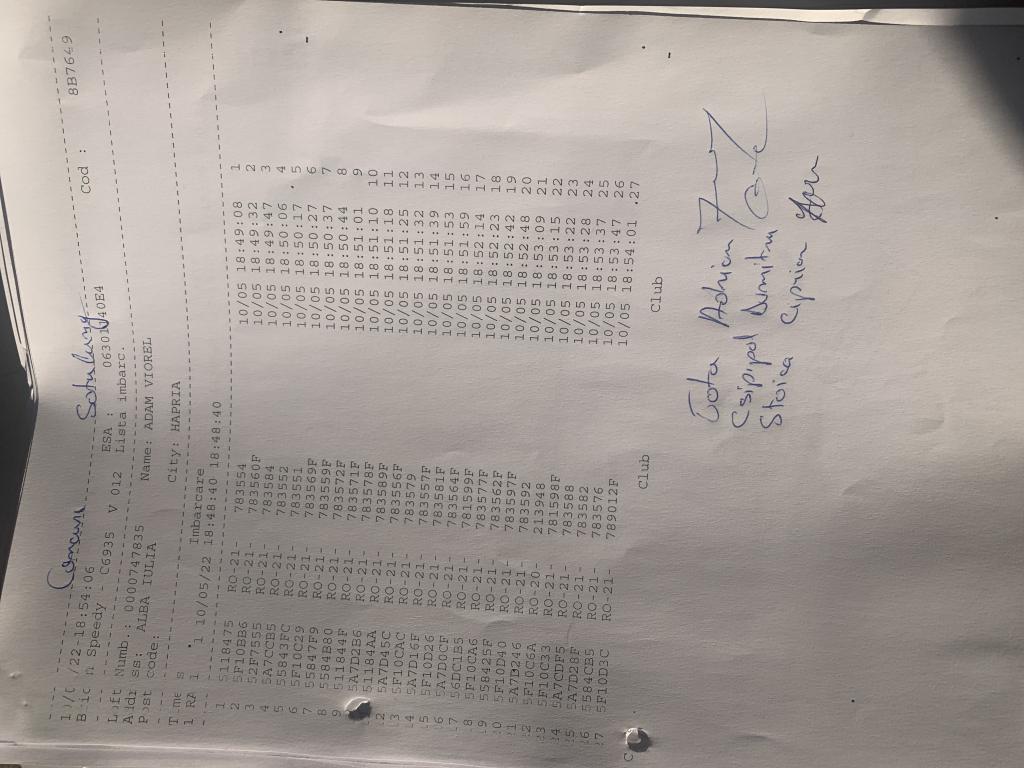 Concurs
/22-18:54:06
n Speedy - C6935 V 012 ESA :
Cod : 8B7649
Loft Numb.: 0000747835 Lista imbarc.
ss: ALBA IULIA Name: ADAM VIOREL
Post code: City: HAPRIA
1 10/05/22 Imbarcare
18:48:40 18:48:40
1 5118475 RO-21- 783554 10/05 18:49:08 1
2 5F10BB6 RO-21- 783560F 10/05 18:49:32 2
3 52F7555 RO-21- 783584 10/05 18:49:47 3
4 5A7CCB5 RO-21- 783552 10/05 18:50:06 4
5 55843FC RO-21- 783551 10/05 18:50:17 5
6 5F10C29 RO-21- 783569F 10/05 18:50:27 6
7 55847F9 RO-21- 783559F 10/05 18:50:37 7
8 5584B80 RO-21- 783572F 10/05 18:50:44 8
9 511844F RO-21- 783571F 10/05 18:51:01 9
5A7D2E6 RO-21- 783578F 10/05 18:51:10 10
51184AA RO-21- 783589F 10/05 18:51:18 11
2 5A7D45C RO-21- 783556F 10/05 18:51:25 12
3 5F10CAC RO-21- 783579 10/05 18:51:32 13
4 5A7D16F RO-21- 783557F 10/05 18:51:39 14
5 5F10D26 RO-21- 783581F 10/05 18:51:53 15
6 5A7D0CF RO-21- 783564F 10/05 18:51:59 16
7 56DC1B5 RO-21- 781599F 10/05 18:52:14 17
8 5F10CA6 RO-21- 783577F 10/05 18:52:23 18
9 558425F RO-21- 783562F 10/05 18:52:42 19
0 5F10D40 RO-21- 783597F 10/05 18:52:48 20
1 5A7D246 RO-21- 783592 10/05 18:53:09 21
2 5F10C6A RO-20- 213948 10/05 18:53:15 22
3 5F10C33 RO-21- 781598F 10/05 18:53:22 23
4 5A7CDF5 RO-21- 783588 10/05 18:53:28 24
5 5A7DD8F RO-21- 783582 10/05 18:53:37 25
6 5584CB5 RO-21- 783576 10/05 18:53:47 26
7 5F10D3C RO-21- 789012F 10/05 18:54:01 27
Club Club
Tota Adrian
Csipipol Dumitru
Stoica Ciprian